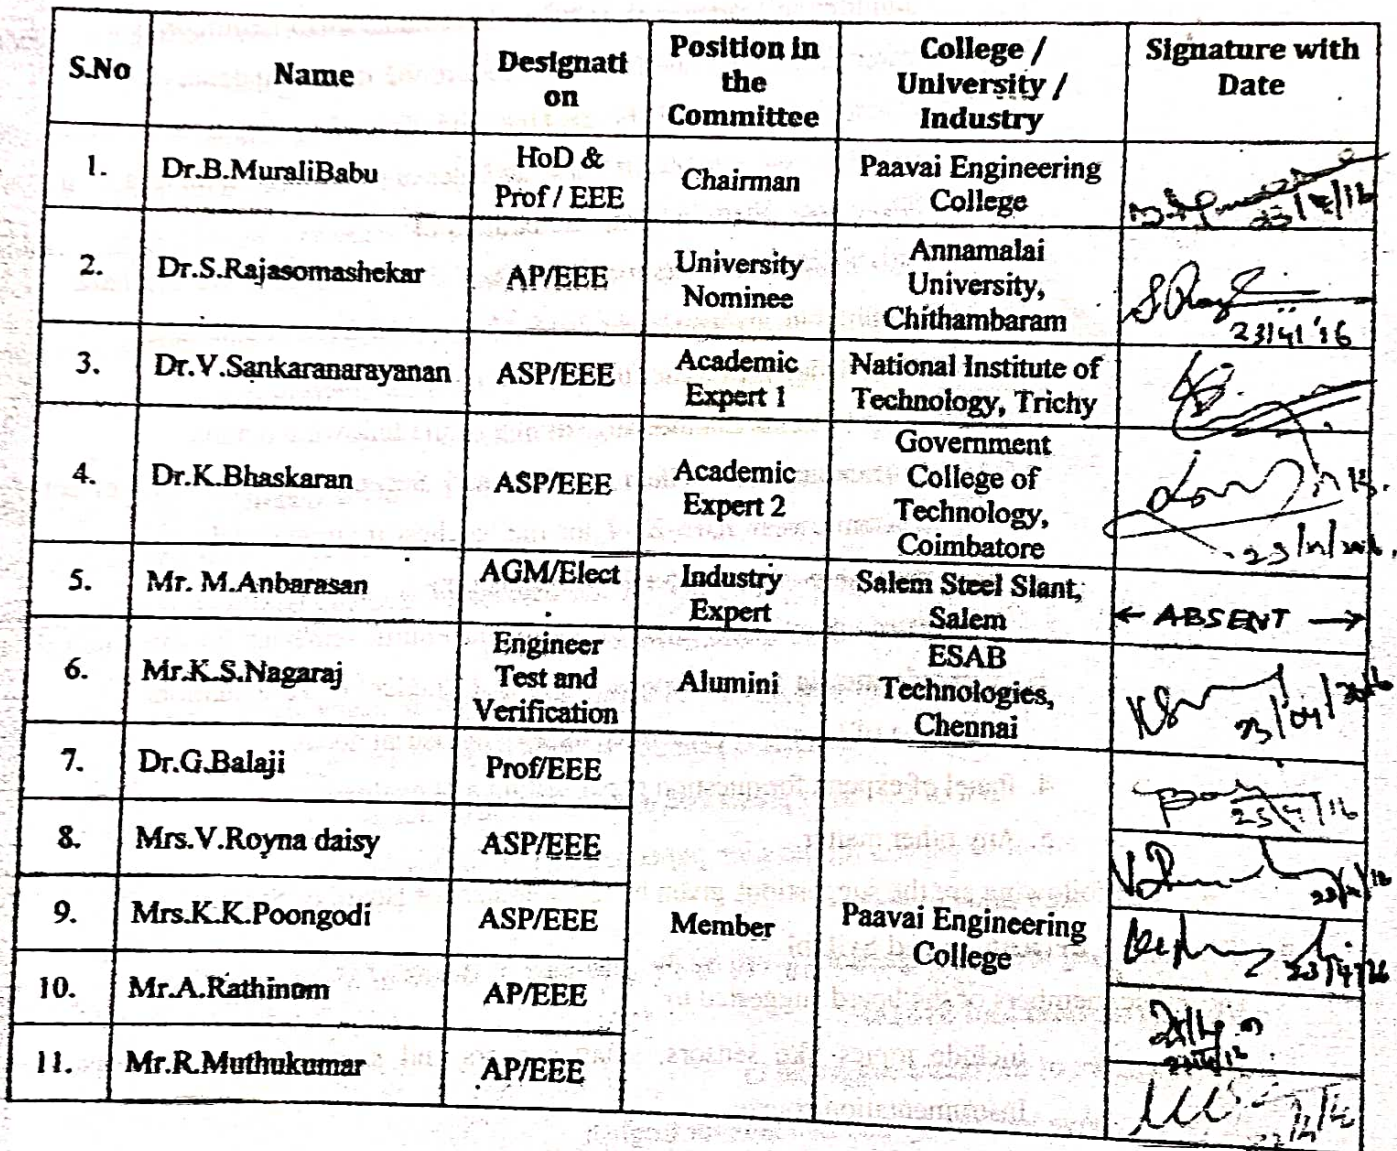 S.No Name Designati on Position in the Committee College / University / Industry Signature with Date
1. Dr.B.MuraliBabu HoD & Prof / EEE Chairman Paavai Engineering College
2. Dr.S.Rajasomashekar AP/EEE University Nominee Annamalai University, Chithambaram 23/4/'16
3. Dr.V.Sankaranarayanan ASP/EEE Academic Expert 1 National Institute of Technology, Trichy
4. Dr.K.Bhaskaran ASP/EEE Academic Expert 2 Government College of Technology, Coimbatore
5. Mr. M.Anbarasan AGM/Elect Industry Expert Salem Steel Slant, Salem ← ABSENT →
6. Mr.K.S.Nagaraj Engineer Test and Verification Alumini ESAB Technologies, Chennai 23/04/2016
7. Dr.G.Balaji Prof/EEE Member Paavai Engineering College 23/4/16
8. Mrs.V.Royna daisy ASP/EEE 23/4/16
9. Mrs.K.K.Poongodi ASP/EEE 23/4/16
10. Mr.A.Rathinom AP/EEE
11. Mr.R.Muthukumar AP/EEE